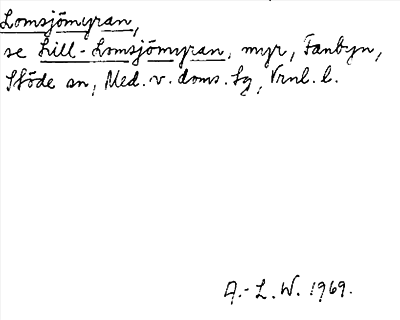 Lomsjömyran,
se Lill-Lomsjömyran, myr, Fanbyn,
Stöde sn, Med. v. doms. sg, Vrnl. l.
A.-L. W. 1969.